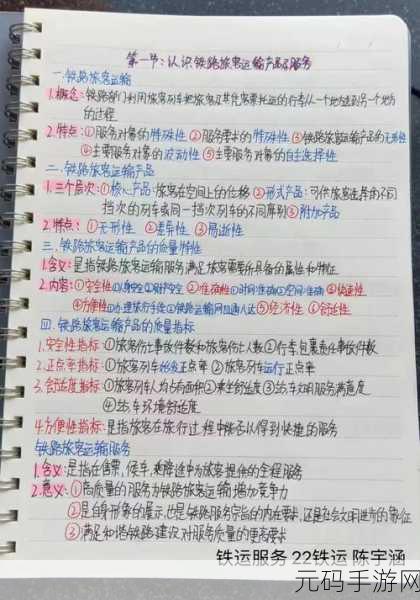 第一节:认识铁路旅客运输产品及服务
一.铁路旅客运输
1.概念:铁路部门利用旅客列车把旅客及其凭客票托运的行李从一个地方运到另一个地方
的过程
2.特点:①服务对象的特殊性②服务要求的特殊性③铁路旅客运输产品的无形性
④主要服务对象的流动性⑤主要服务对象的自主选择性
二.铁路旅客运输产品
1.三个层次:①核心产品:旅客在空间上的位移②形式产品:可供旅客选择的不同
档次的列车或同一档次列车的不同席别③附加产品
2.特点:①无形性②差异性③易逝性
三.铁路旅客运输产品的质量特性
1.含义:是指铁路旅客运输服务满足旅客需要所具备的属性和特征
2.内容:①安全性①人身安全②财产安全②准确性①时间准确②空间准确③快速性
④方便性①办理旅行手续②铁路运输网四通八达⑤经济性⑥舒适性
四.铁路旅客运输产品的质量指标
1.安全性指标:①旅客伤亡事故件数和旅客伤亡人数②行李、包裹责任事故件数
2.正点率指标:①旅客列车始发正点率②旅客列车运行正点率
3.舒适度指标:①旅客列车人均占有面积②乘坐舒适度③站车文明服务满意度
④站车环境舒适度
4.方便性指标:是指旅客在旅行过程中能否认得到快捷的服务
铁路旅客运输服务
1.含义:是指在售票,候车,乘降途中为旅客提供的全程服务
2.意义:①高质量的服务为铁路旅客运输增加竞争力
②是自身形象的展示,也是铁路服务宗旨的内在要求,还是社会文明进步的象征
③满足和谐铁路建设对服务质量的更高要求
铁运服务 22铁运 陈宇涵
元码手游网